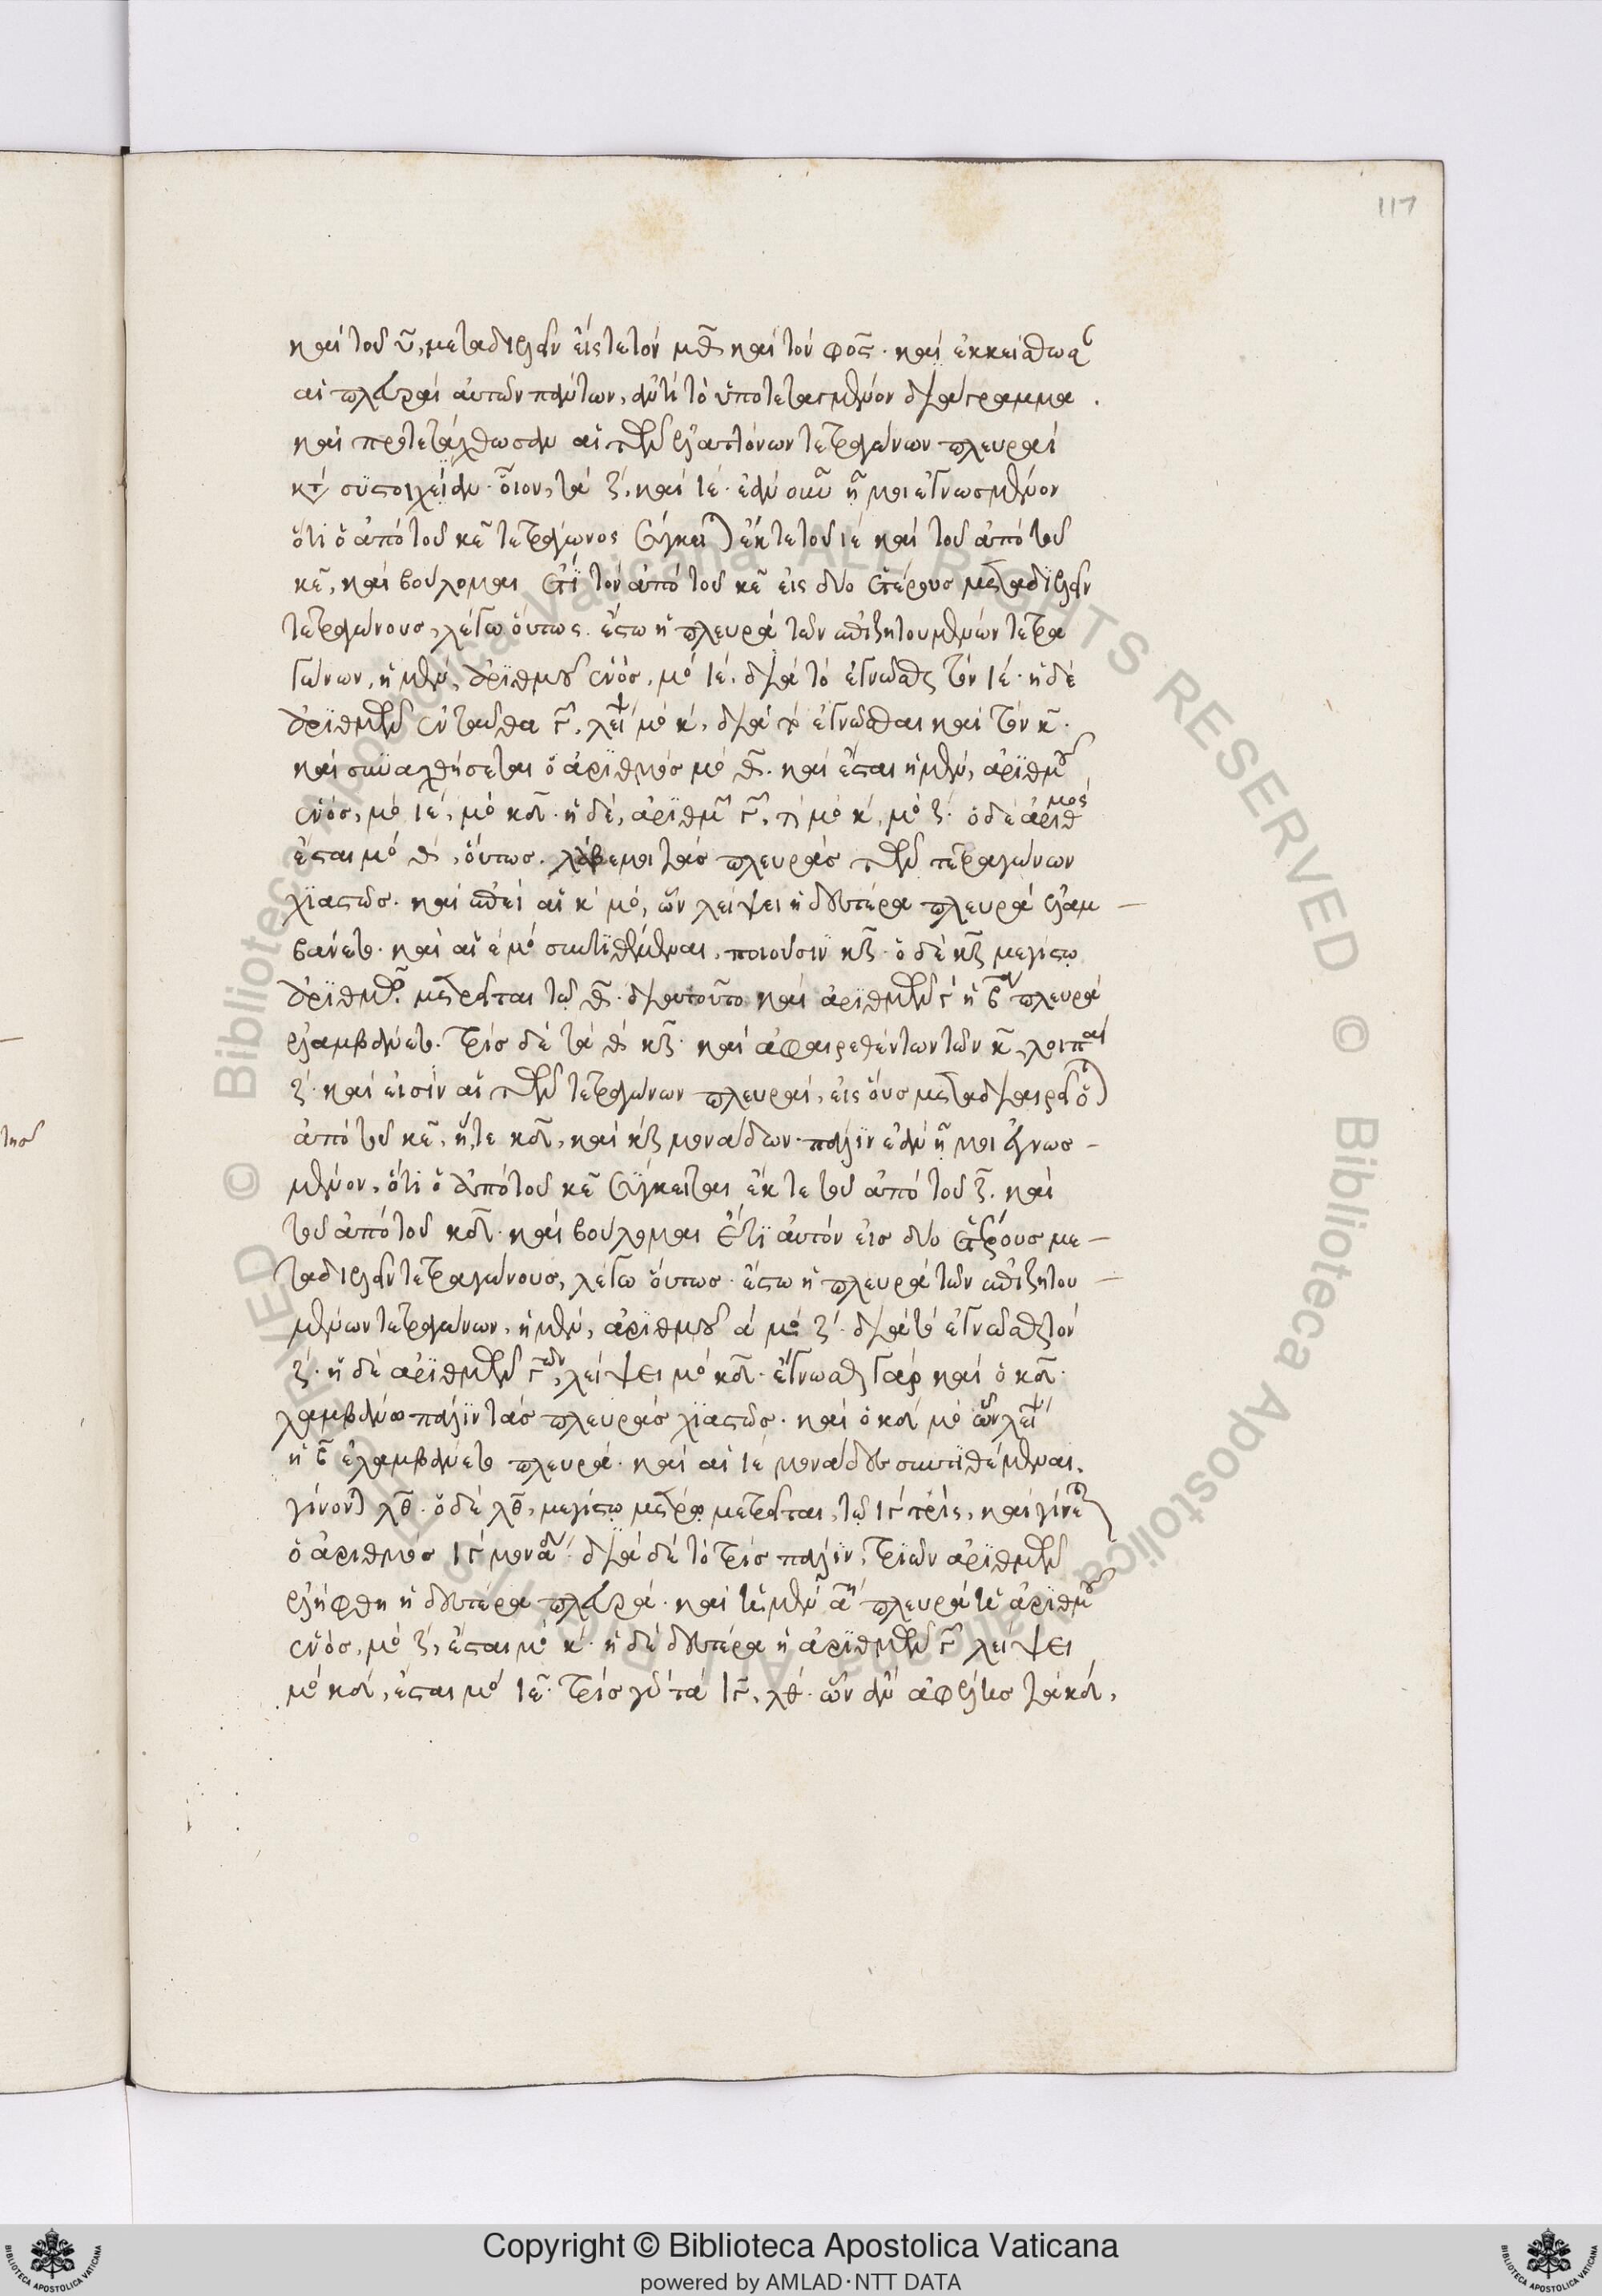 117
καὶ τοῦ υ, μεταδιελεῖν εἴς τε τὸν μθ καὶ τὸν φος. καὶ ἐκκείσθωσαν
αἱ πλευραὶ αὐτῶν πάντων, κατὰ τὸ ὑποτεταγμένον διάγραμμα.
καὶ προτετάχθωσαν αἱ τῶν ἐλαττόνων τετραγώνων πλευραὶ
κατὰ συστοιχείαν. οἷον, τὰ ζ, καὶ ιε. ἐὰν οὖν ᾖ μοι ἐγνωσμένον
ὅτι ὁ ἀπὸ τοῦ κε τετράγωνος σύγκειται ἔκ τε τοῦ ιε καὶ τοῦ ἀπὸ τοῦ
κε, καὶ βούλομαι ἔτι τὸν ἀπὸ τοῦ κε εἰς δύο ἑτέρους μεταδιελεῖν
τετραγώνους, λέγω οὕτως. ἔστω ἡ πλευρὰ τῶν ἐπιζητουμένων τετρα
γώνων, ἡ μὲν, ἀριθμοῦ ἑνὸς, μο ιε. διὰ τὸ ἐγνῶσθαι τὸν ιε. ἡ δὲ
ἀριθμῶν ἐνταῦθα γ, λείψει μο κ, διὰ τὸ ἐγνῶσθαι καὶ τὸν κ.
καὶ συναχθήσεται ὁ ἀριθμὸς μο θ. καὶ ἔσται ἡ μὲν, ἀριθμοῦ
ἑνὸς, μο ιε, μο κδ. ἡ δὲ, ἀριθμῶν γ, λείψει μο κ, μο ζ. ὁ δὲ ἀριθμὸς
ἔσται μο θ, οὕτως. λάβε μοι τὰς πλευρὰς τῶν τετραγώνων
χιαστῶς. καὶ ἐπεὶ αἱ κ μο, ὧν λείψει ἡ δευτέρα πλευρὰ ἐλαμ
βάνετο. καὶ αἱ ε μο συντιθέμεναι, ποιοῦσιν κζ. ὁ δὲ κζ μεγίστῳ
ἀριθμῷ μετρεῖται τῷ θ. διατοῦτο καὶ ἀριθμῶν γ ἡ β πλευρὰ
ἐλαμβάνετο. τρὶς δὲ τὰ θ κζ. καὶ ἀφαιρεθέντων τῶν κ, λοιπαὶ
ζ. καὶ εἰσὶν αἱ τῶν τετραγώνων πλευραὶ, εἰς οὓς μεταδιαιρεῖται ὁ
ἀπὸ τοῦ κε, ἥ τε κδ, καὶ κζ μονάδων. πάλιν ἐὰν ᾖ μοι ἐγνωσ
μένον, ὅτι ὁ ἀπὸ τοῦ κε σύγκειται ἔκ τε τοῦ ἀπὸ τοῦ ζ. καὶ
τοῦ ἀπὸ τοῦ κδ. καὶ βούλομαι ἔτι αὐτὸν εἰς δύο ἑτέρους με
ταδιελεῖν τετραγώνους, λέγω οὕτως. ἔστω ἡ πλευρὰ τῶν ἐπιζητου
μένων τετραγώνων, ἡ μὲν, ἀριθμοῦ α μο ζ. διὰ τὸ ἐγνῶσθαι τὸν
ζ. ἡ δὲ ἀριθμῶν γ, λείψει μο κδ. ἔγνωσται γὰρ καὶ ὁ κδ.
λαμβάνω πάλιν τὰς πλευρὰς χιαστῶς. καὶ ὁ κδ μο ὧν λείψει
ἡ β ἐλαμβάνετο πλευρά. καὶ αἱ ιε μονάδες συντιθέμεναι,
γίνονται λθ. ὁ δὲ λθ, μεγίστῳ μέτρῳ μετρεῖται, τῷ ιγ τρὶς, καὶ γίνεται
ὁ ἀριθμὸς ιγ μονάδων. διὰ δὲ τὸ τρὶς πάλιν, τριῶν ἀριθμῶν
ἐλήφθη ἡ δευτέρα πλευρά. καὶ ἡ μὲν α πλευρὰ ἡ ἀριθμοῦ
ἑνὸς, μο ζ, ἔσται μο κ. ἡ δὲ δευτέρα ἡ ἀριθμῶν γ λείψει
μο κδ, ἔσται μο ιε. τρὶς γὰρ τὰ ιγ, λθ. ὧν ἂν ἀφέλῃς τὰ κδ,